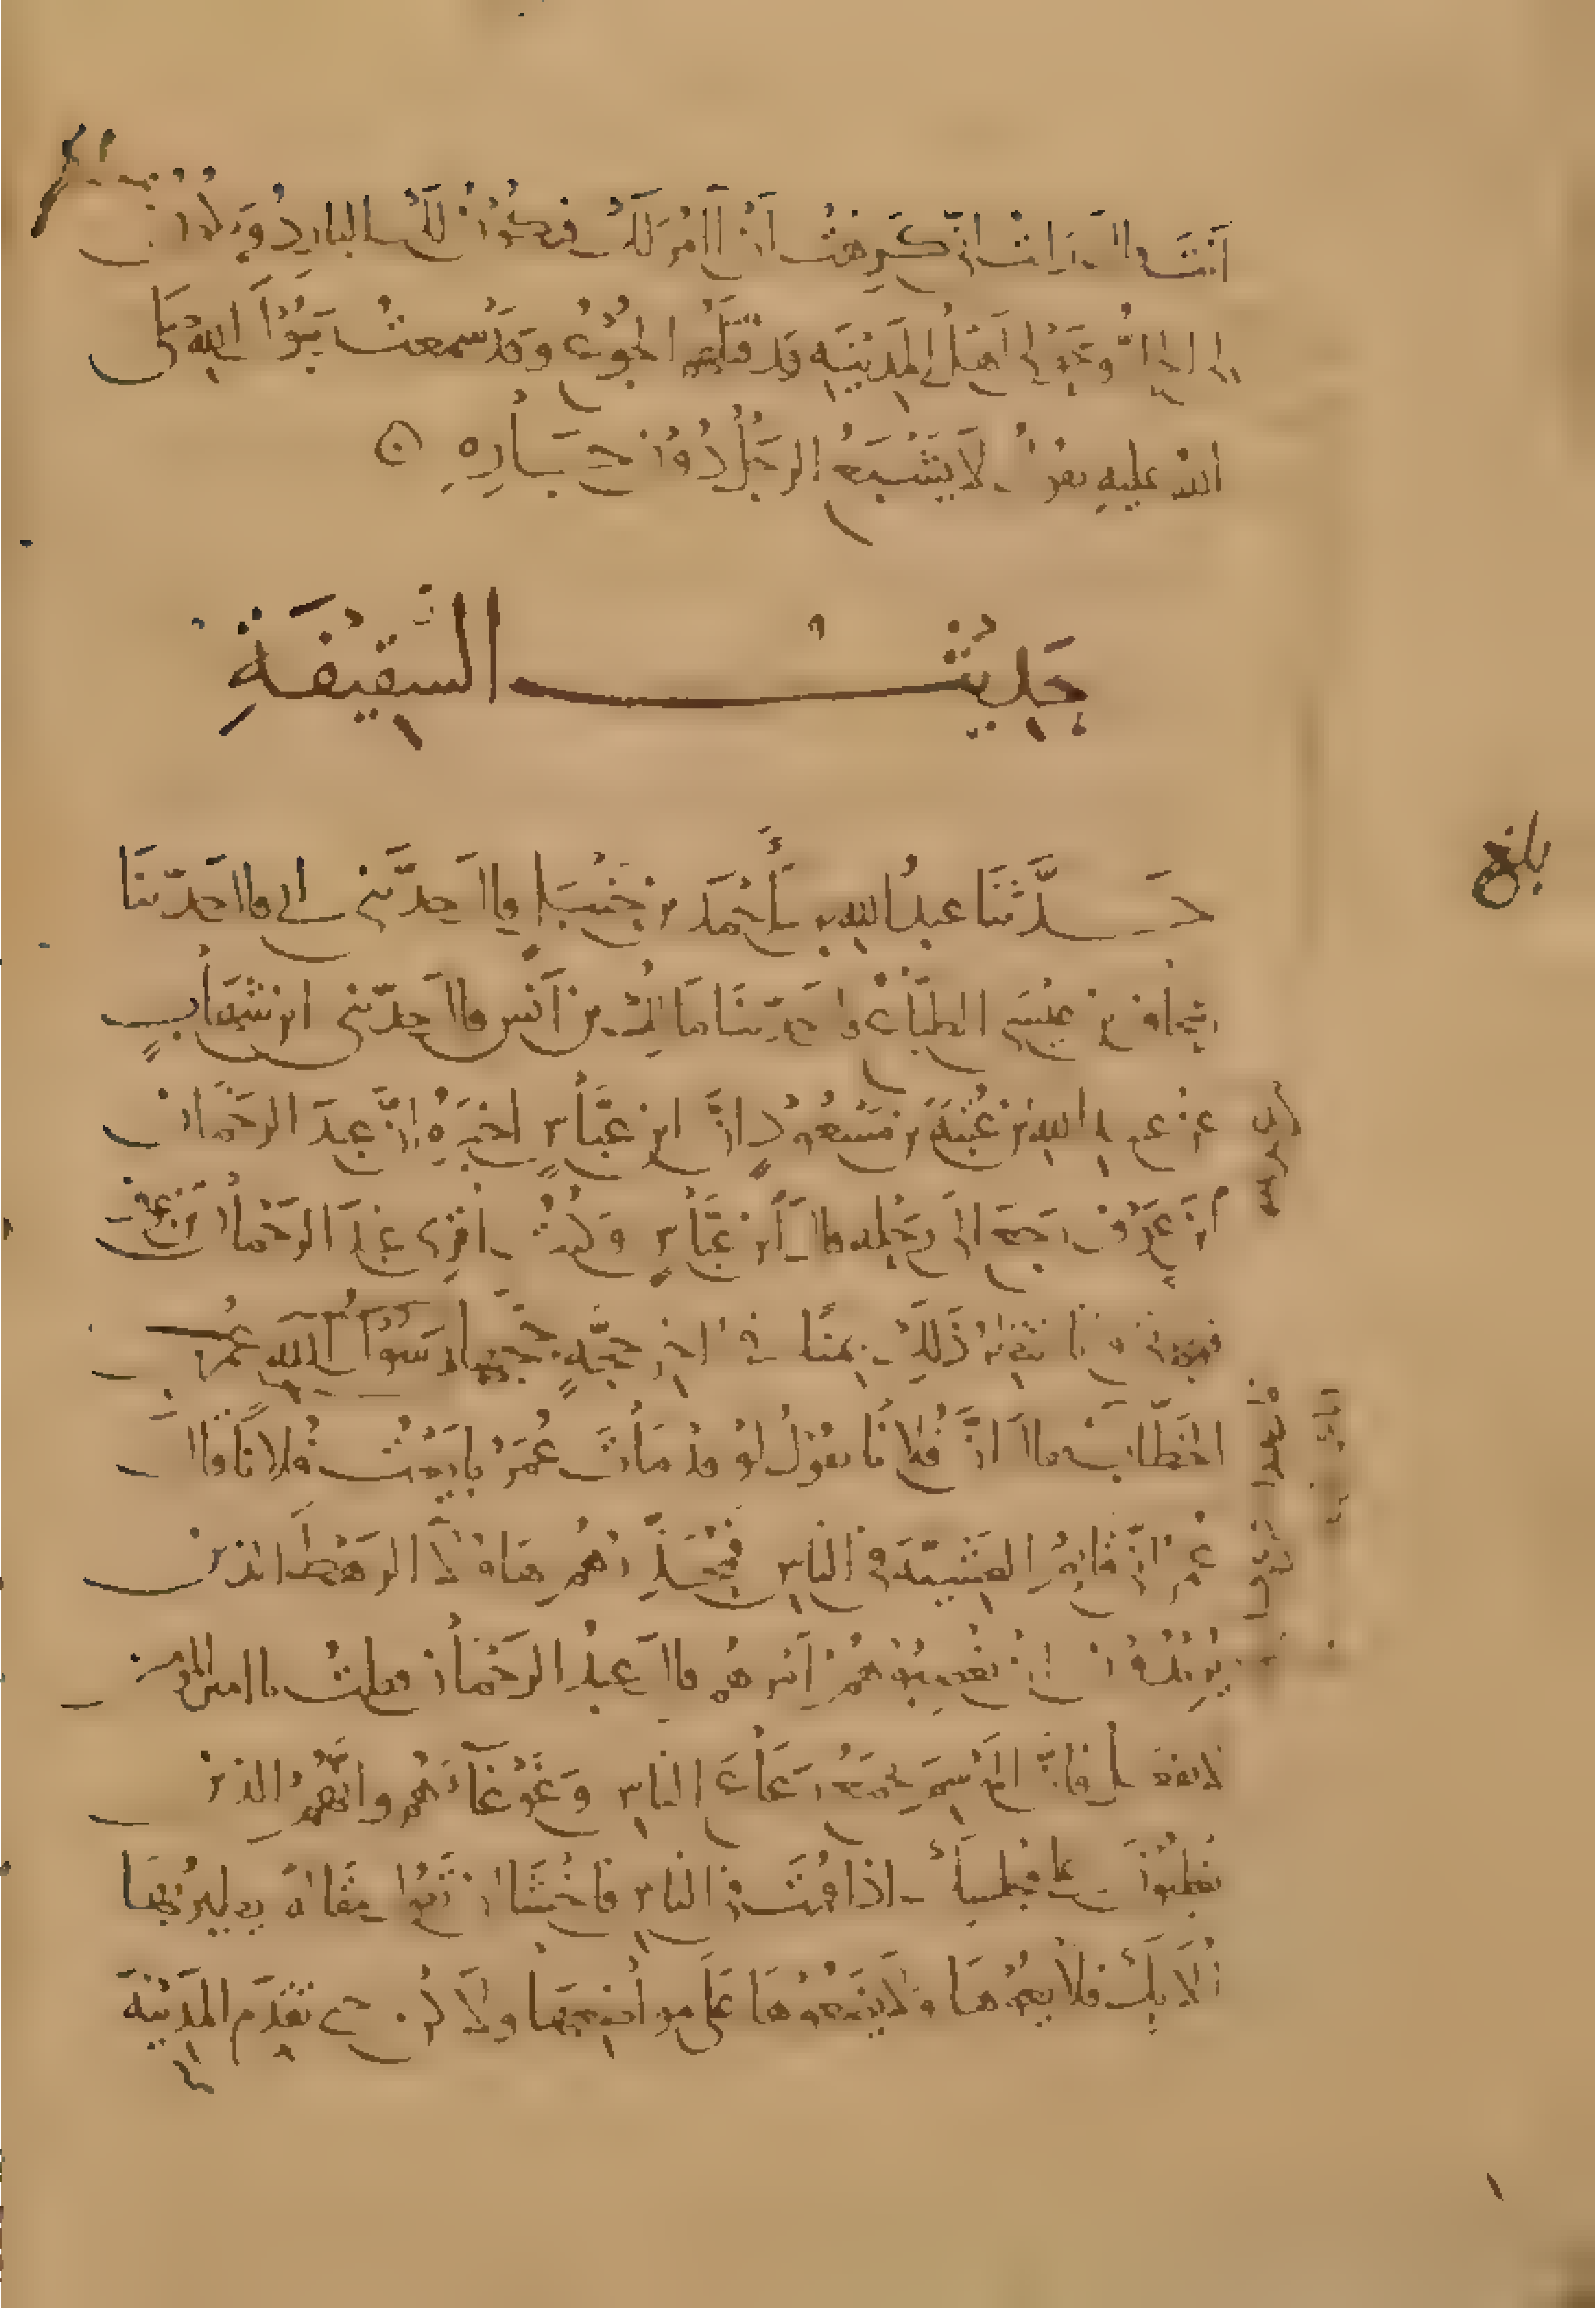 أنت قال إني كرهت أن آمر لك فيكون لك البارد ويكون
لي الحار وحولي أهل المدينة قد قتلهم الجوع وقد سمعت رسول الله صلى
الله عليه يقول لا يشبع الرجل دون جاره
حَدِيثُ السَّقِيفَةِ
حَدَّثَنَا عبدُ الله بن أَحْمَدَ بن حَنْبَلٍ قال حدَّثني أبي قال حدّثنا
إسحاق بن عيسى الطبّاع قال حدّثنا مالك بن أنس قال حدّثني ابن شهابٍ
عن عبيد الله بن عُتْبَةَ بن مَسْعُودٍ أنَّ ابن عبّاسٍ أخبره أنَّ عبدَ الرحمان
بن عوف رجع إلى رحله قال ابن عبّاسٍ وكنتُ أقرئ عبدَ الرحمان بن عوف
فوجدني وأنا أنتظره وذلك بمنًا في آخر حجّةٍ حجّها عمر
الخطاب قال إنَّ فلانًا يقول لو قد مات عُمَرُ بايعتُ فلانًا قال
عمر إني قائم العشيّة في الناس فمحذّرهم هاؤلاء الرهط الذين
يريدون أن يغصبوهم أمرهم قال عبدُ الرحمان فقلتُ يا أمير المؤمنين
لا تفعل فإنَّ الموسم يجمع رعاع الناس وغوغاءهم وإنّهم الذين
يغلبون على مجلسك إذا قمت في الناس فأخشى أن تقول مقالة يطير بها
أولائك فلا يعوها ولا يضعوها على مواضعها ولاكن حتى تقدم المدينة
بلغ